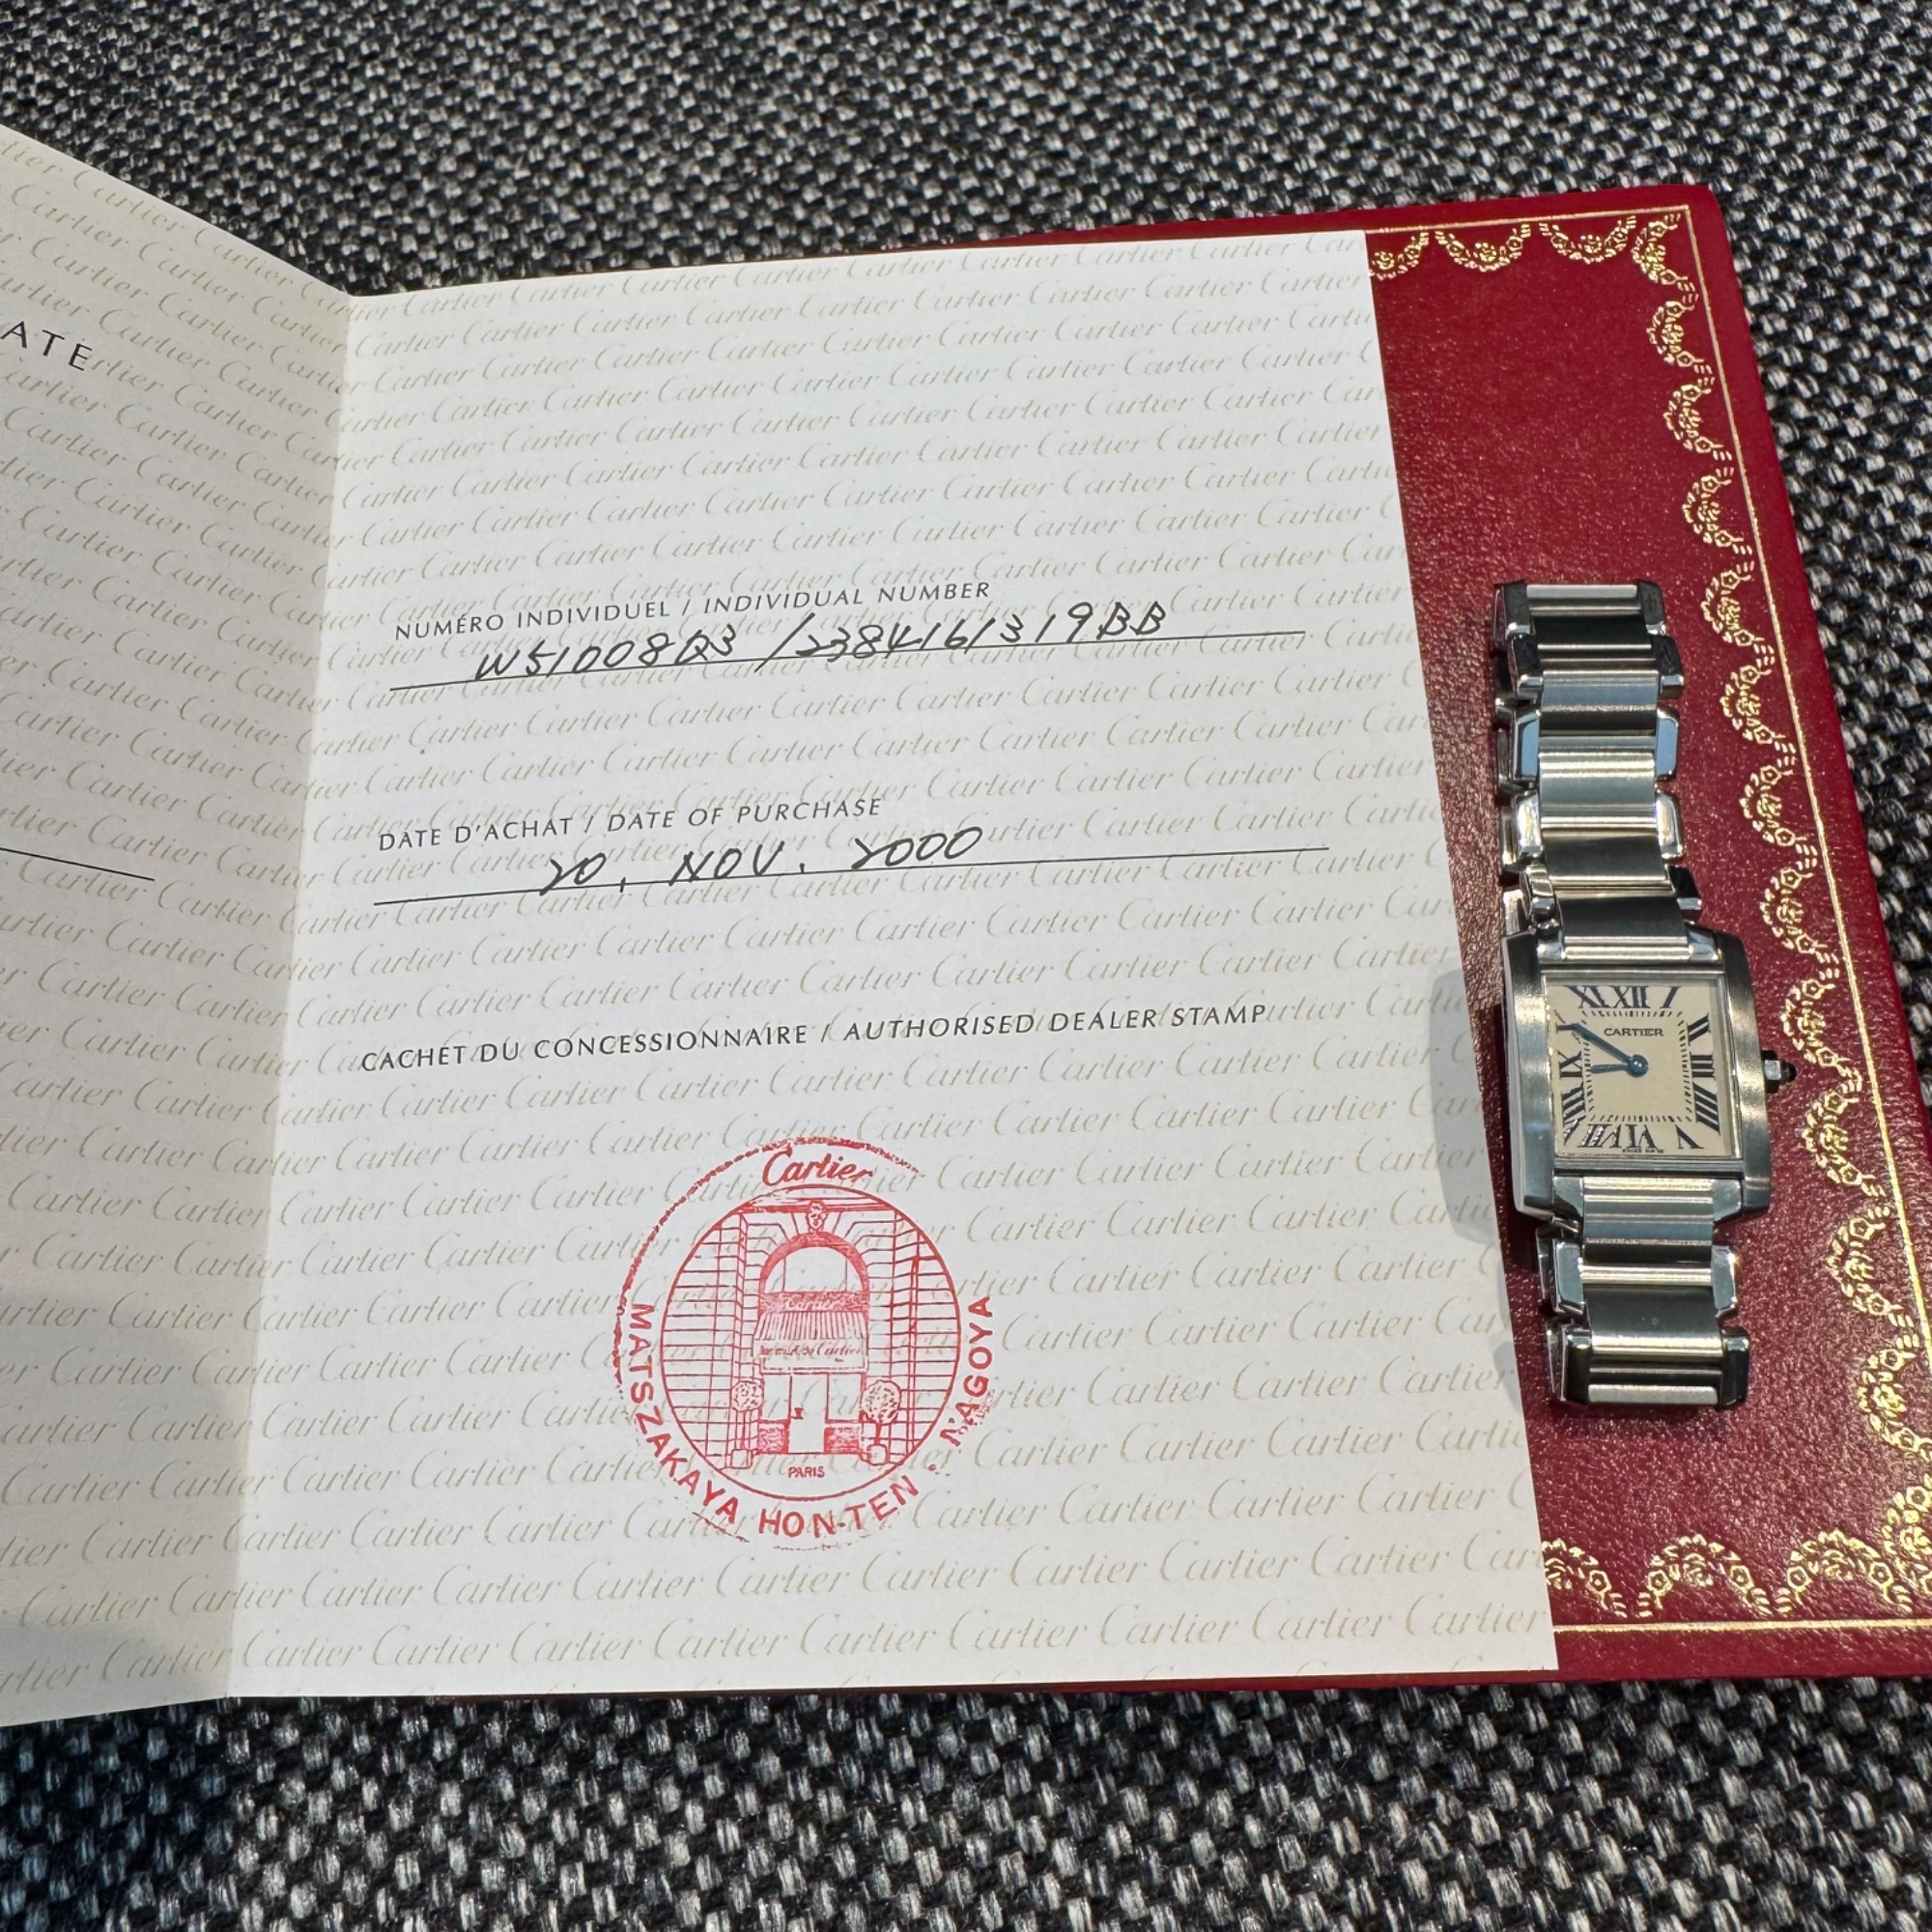 ATE
NUMÉRO INDIVIDUEL / INDIVIDUAL NUMBER
W51008Q3 /2384161319BB
DATE D'ACHAT / DATE OF PURCHASE
20. NOV. 2000
CACHET DU CONCESSIONNAIRE / AUTHORISED DEALER STAMP
Cartier
Cartier
PARIS
MATSZAKAYA HON-TEN . NAGOYA
XI XII I
CARTIER